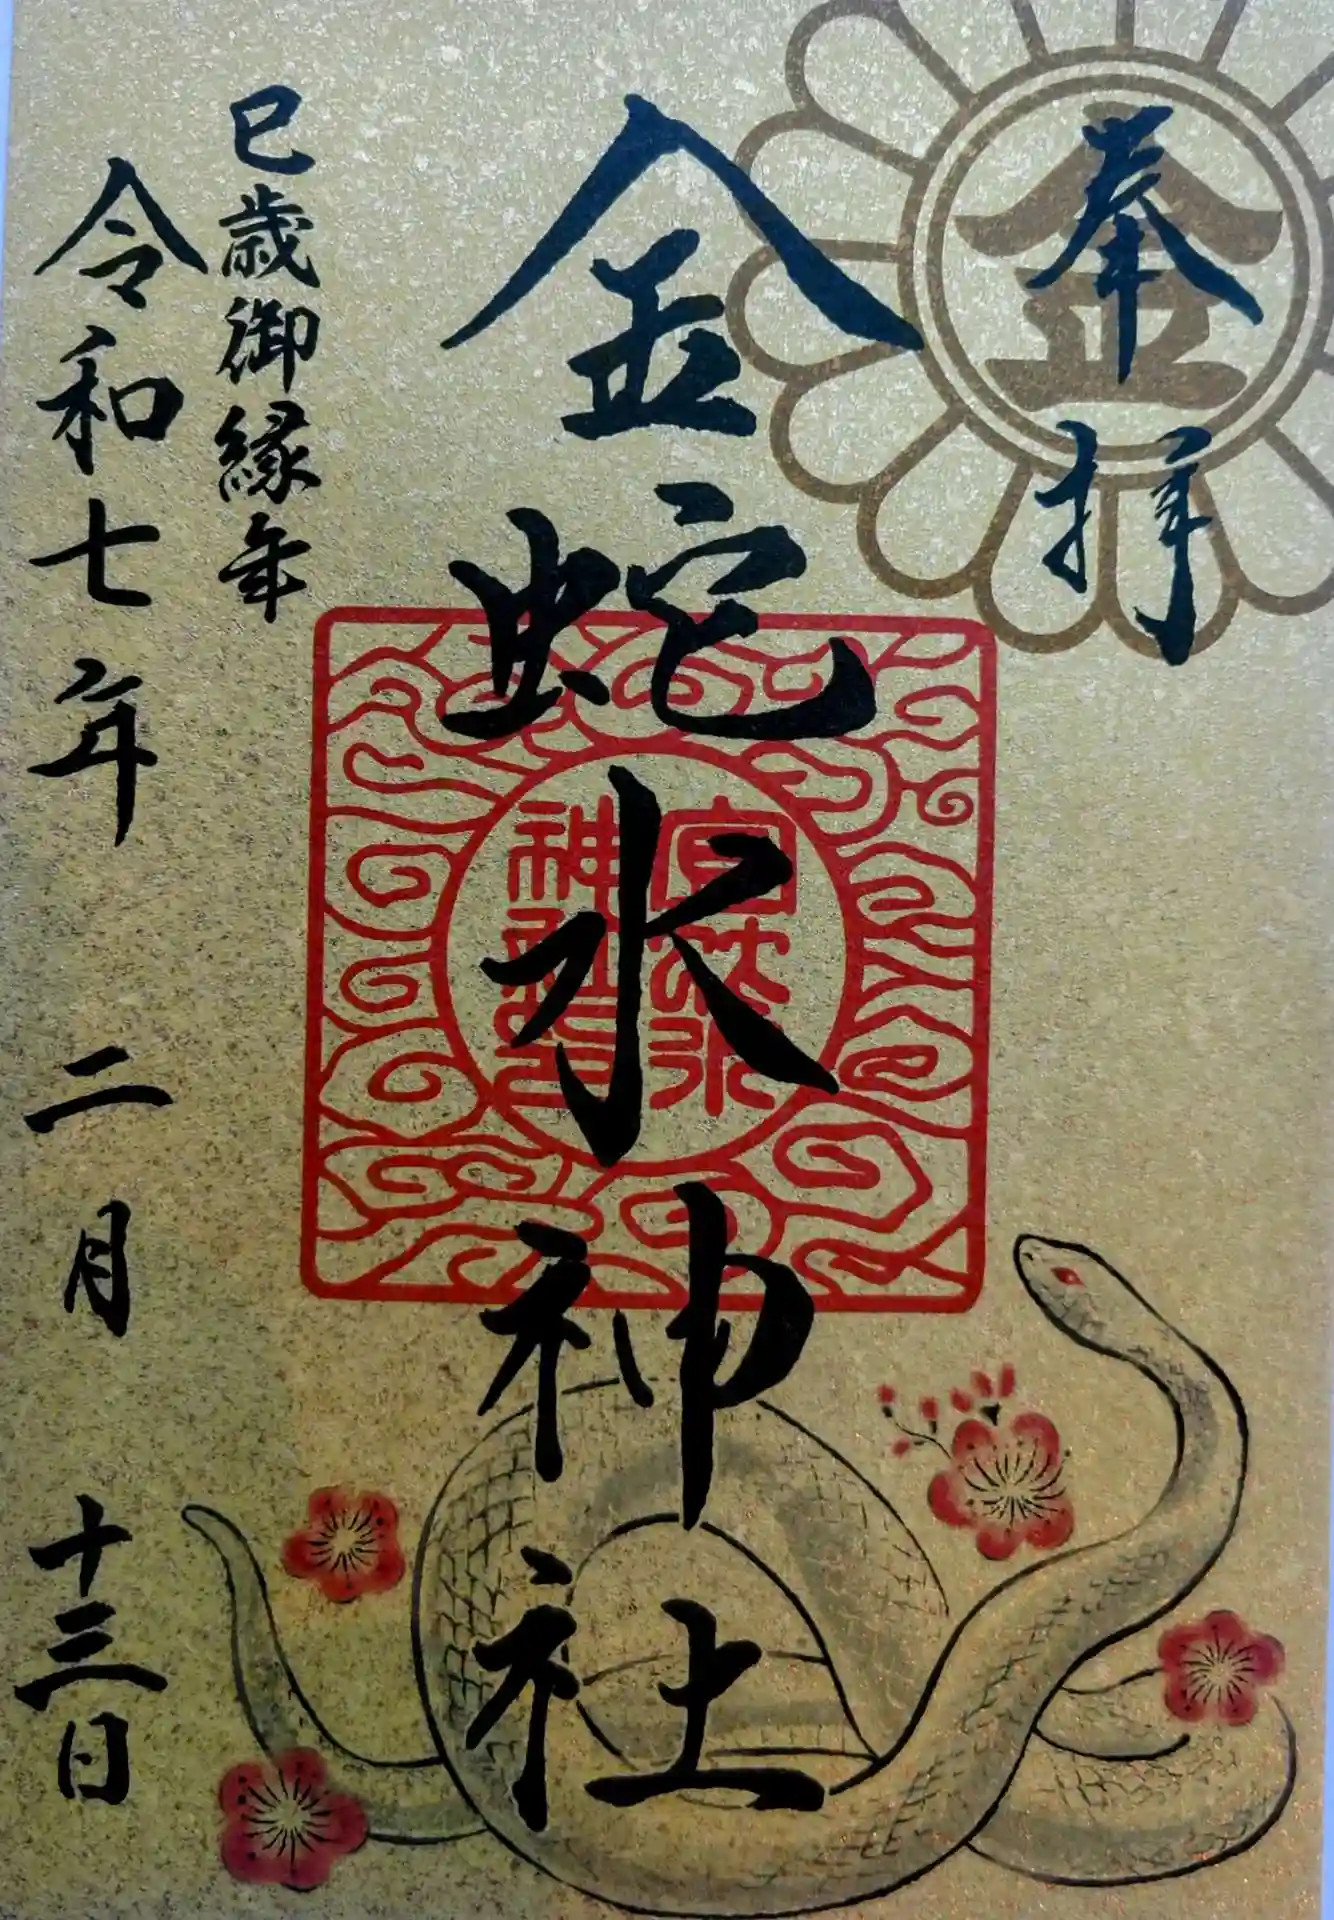 奉拝
金
金蛇水神社
宮金蛇水
神社印
巳歳御縁年
令和七年二月十三日